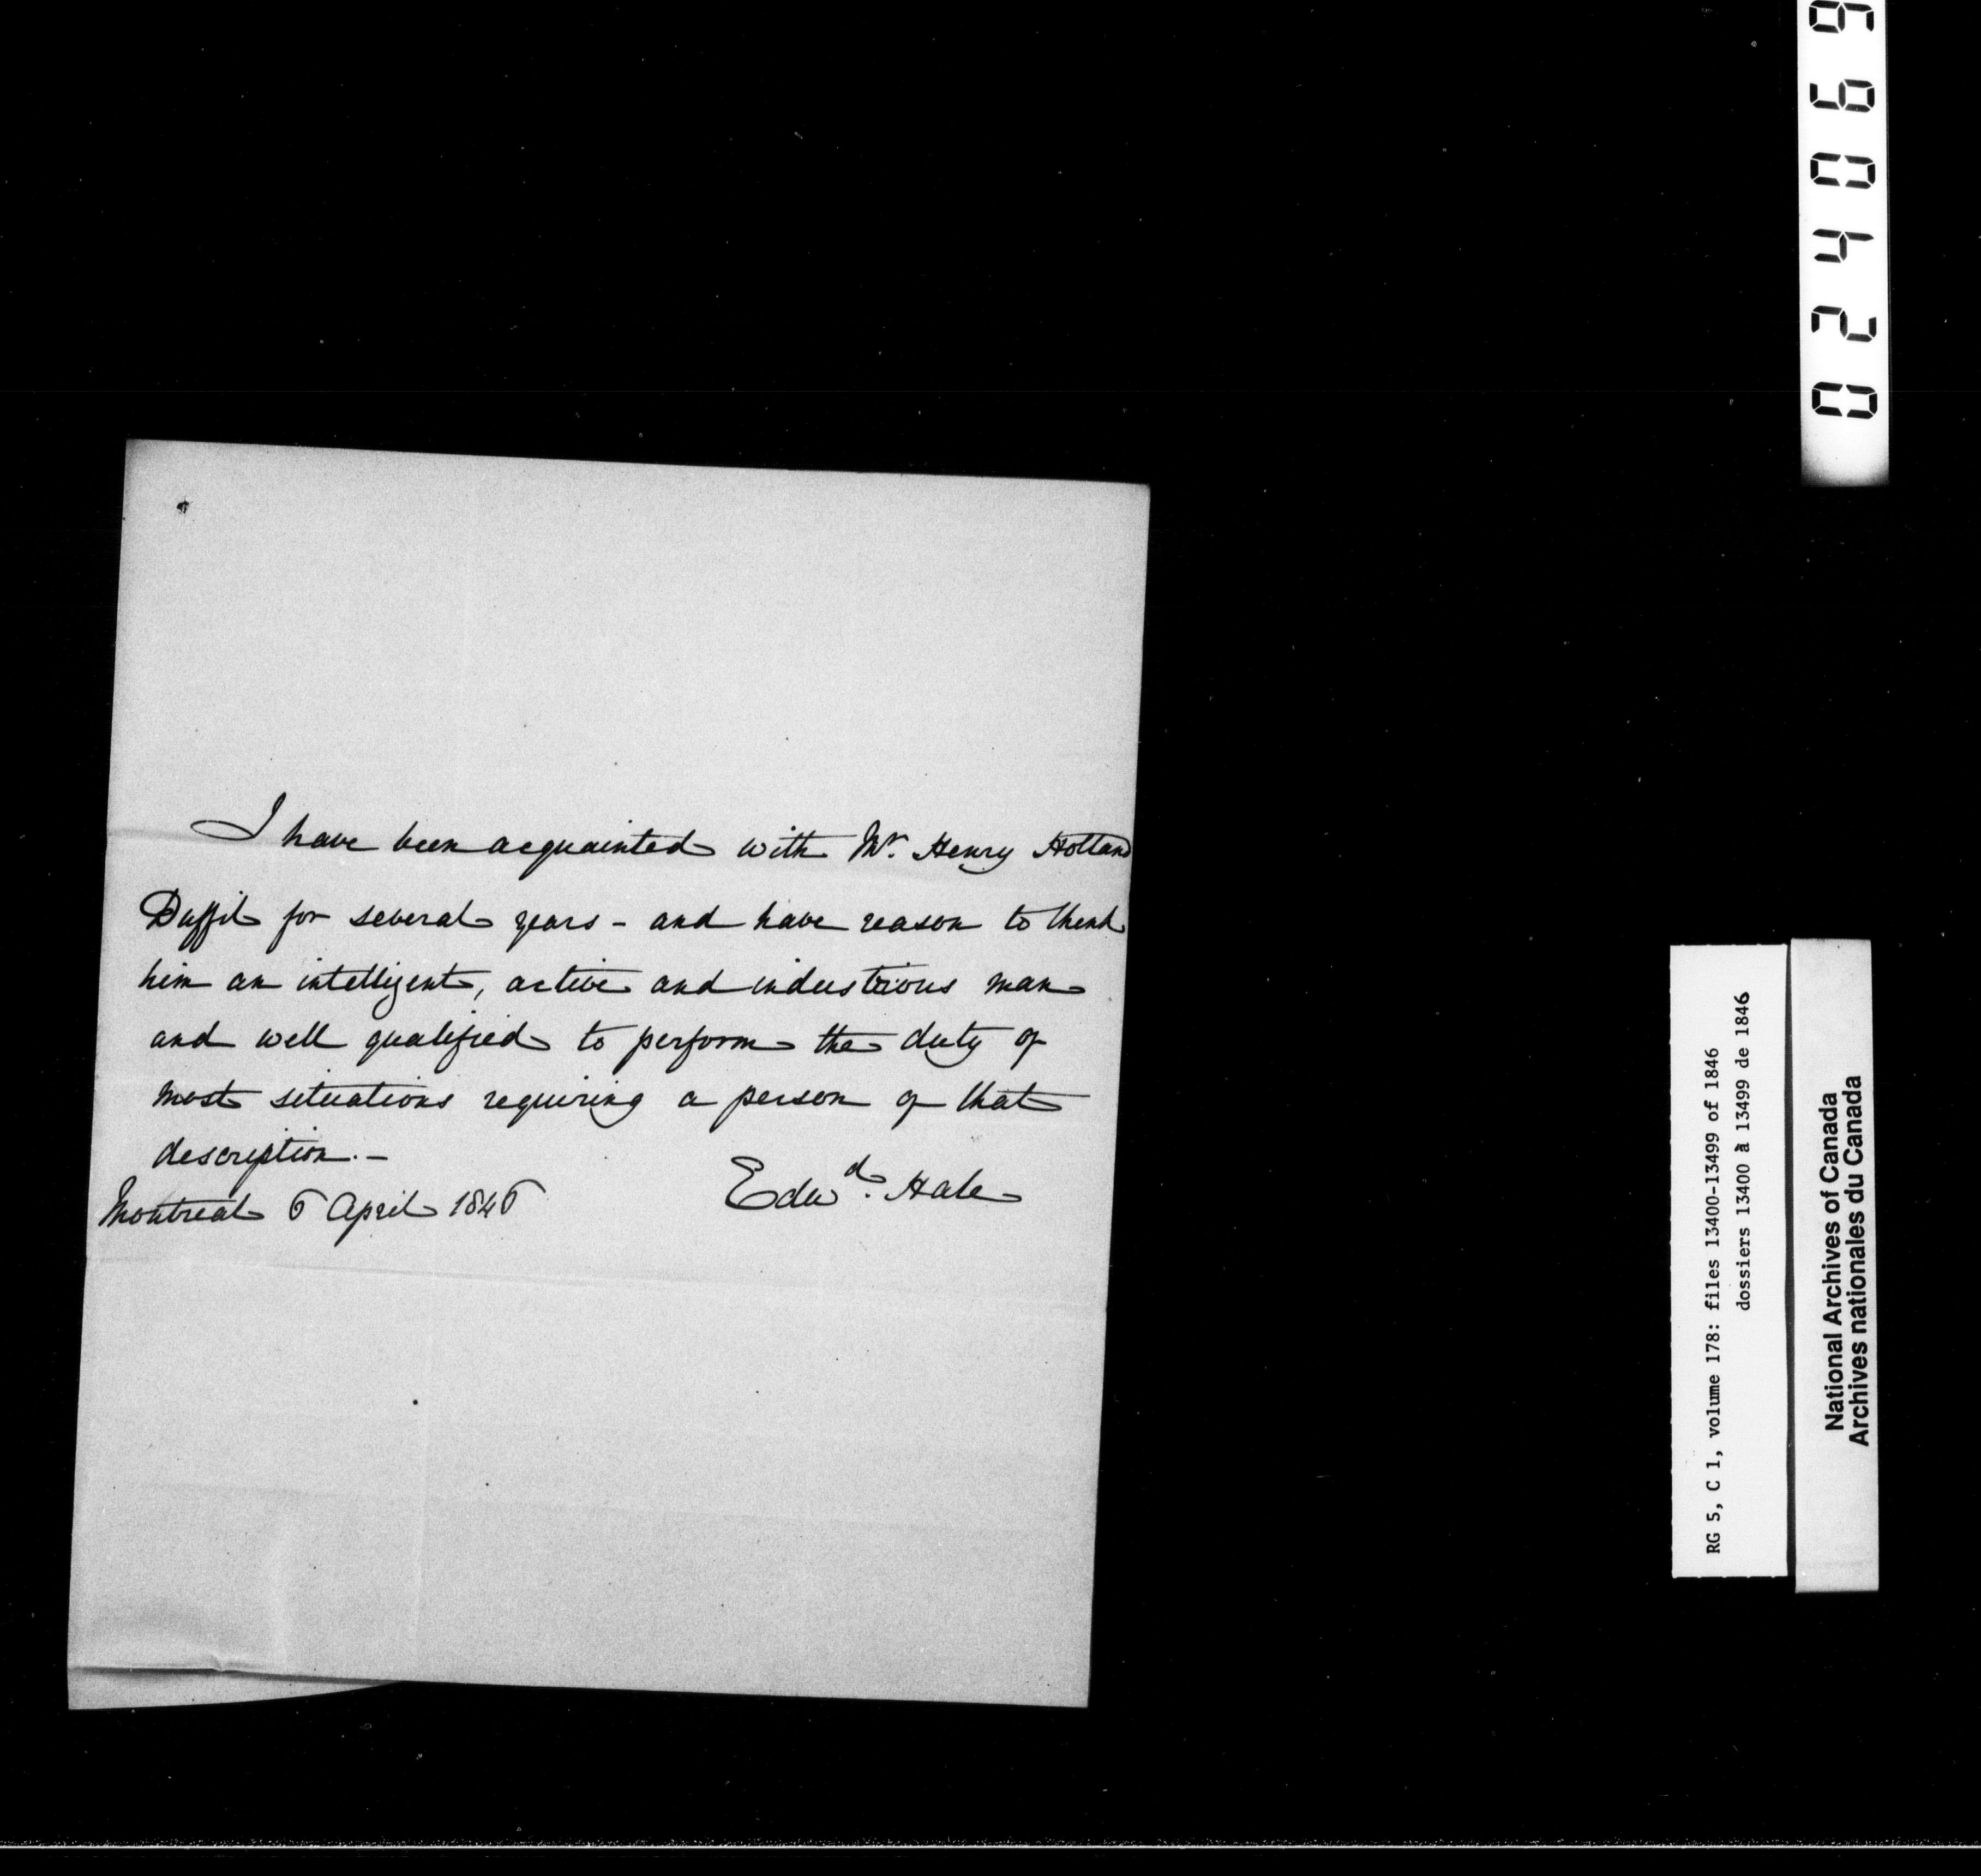 I have been acquainted with Mr. Henry Holland
Duffil for several years - and have reason to think
him an intelligent, active and industrious man
and well qualified to perform the duty of
most situations requiring a person of that
description.-
Edwd. Hale
Montreal 6 April 1846
RG 5, C 1, volume 178: files 13400-13499 of 1846
dossiers 13400 à 13499 de 1846
National Archives of Canada
Archives nationales du Canada